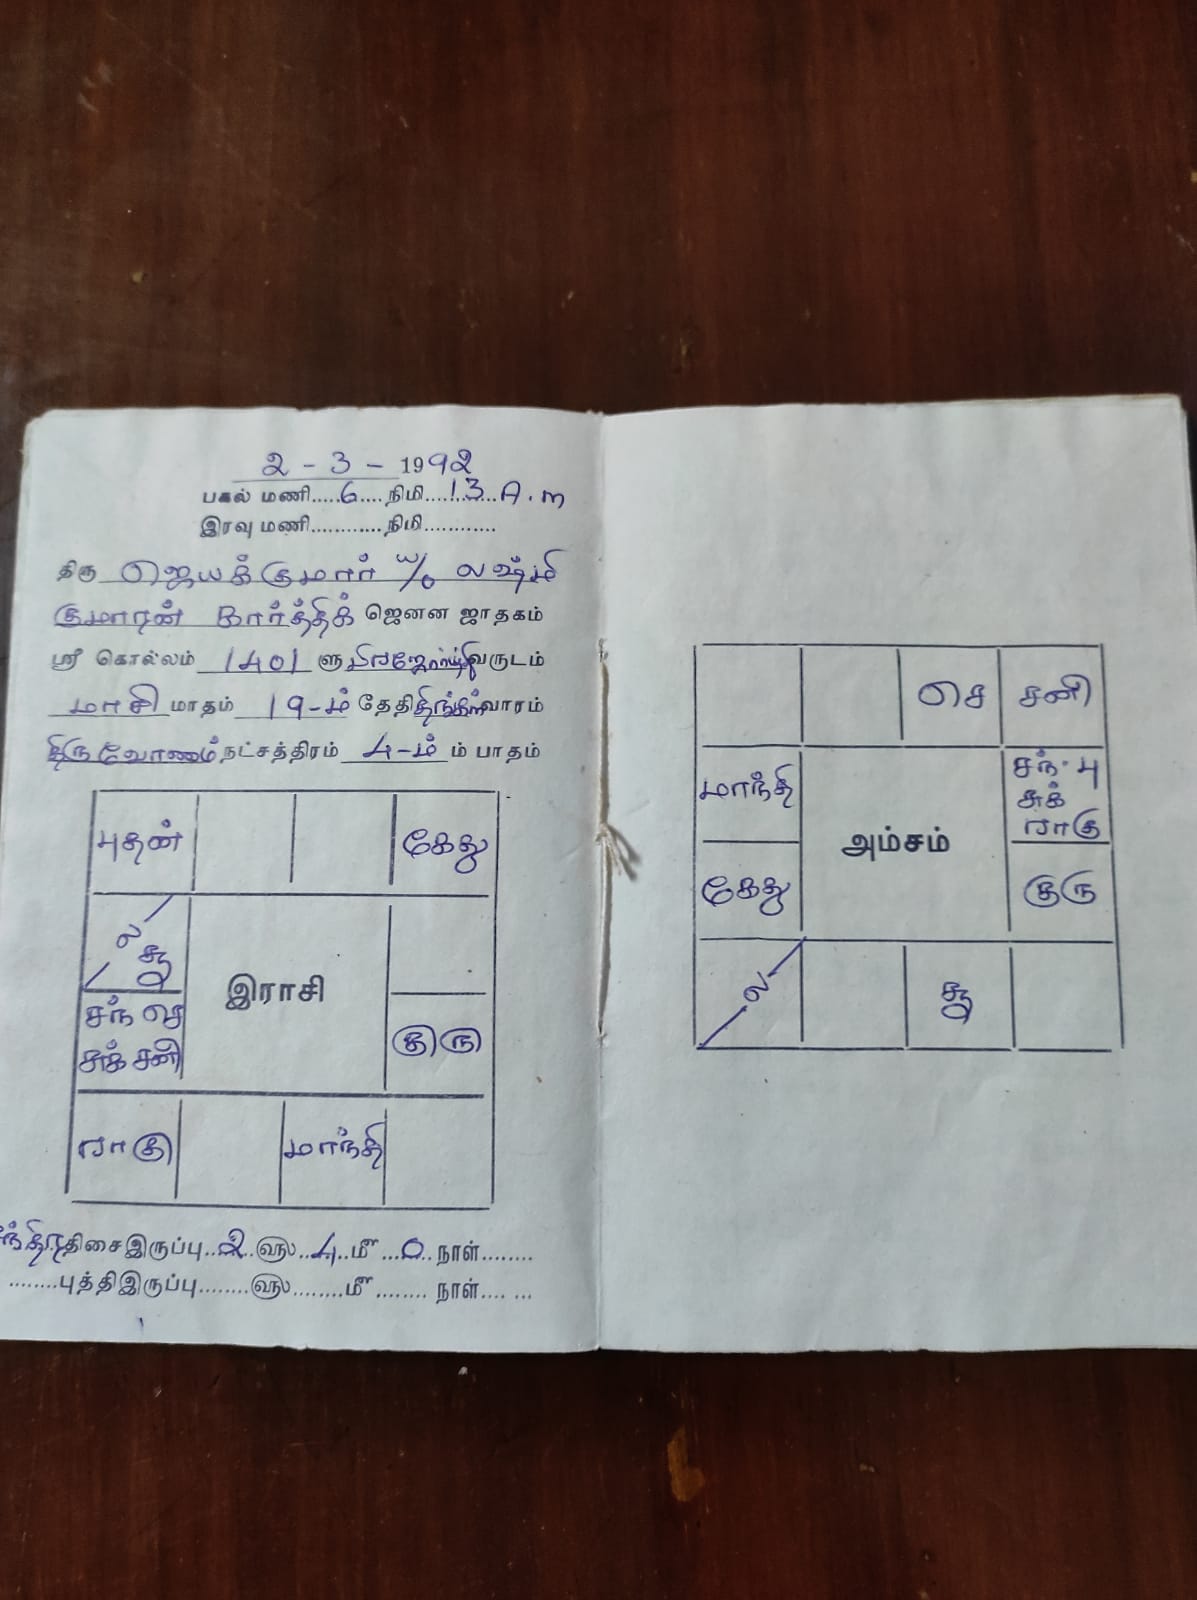 2 - 3 - 1992
பகல் மணி.....6.... நிமி....13...A.m
இரவு மணி............நிமி............
திரு ஜெயக்குமார் லஷ்மி
குமாரன் கார்த்திக் ஜெனன ஜாதகம்
ஸ்ரீ கொல்லம் 1401 ளு வருடம்
மாசி மாதம் 19-ம் தேதி திங்கள் வாரம்
திருவோணம் நட்சத்திரம் 4-ம் ம் பாதம்
புதன் கேது
ல சூ
இராசி
சந் செ
சுக் சனி
குரு
ராகு மாந்தி
திசைஇருப்பு..2..௵...4..மீ...0..நாள்........
........புத்திஇருப்பு........௵........மீ........நாள்.... ...
செ சனி
மாந்தி
சந். பு
சுக்
ராகு
அம்சம்
கேது குரு
ல சூ